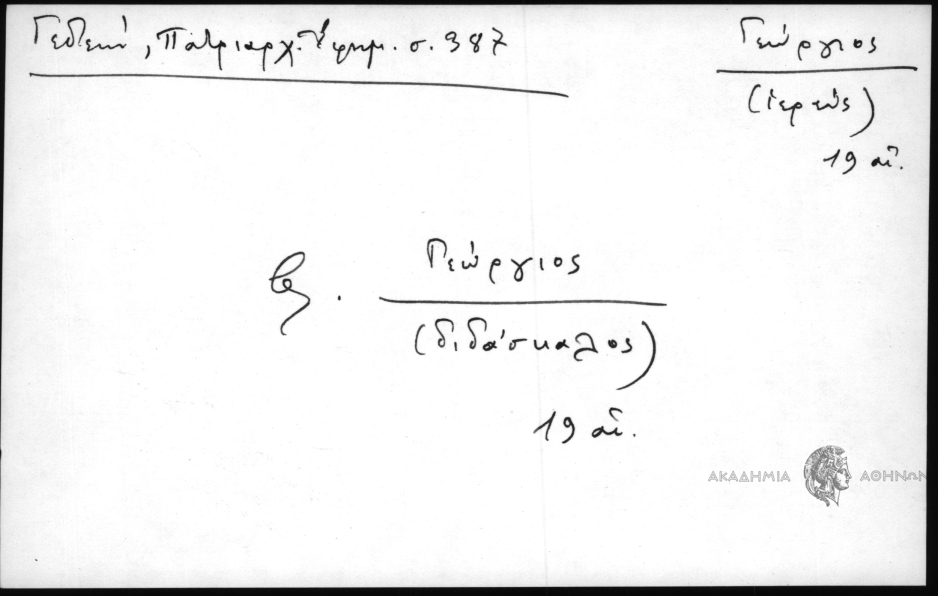 Γεδεών, Πατριαρχ. Ἐφημ. σ. 387
Γεώργιος
(ἱερεύς)
19 αἰ.
Γεώργιος
(διδάσκαλος)
19 αἰ.
ΑΚΑΔΗΜΙΑ ΑΘΗΝΩΝ